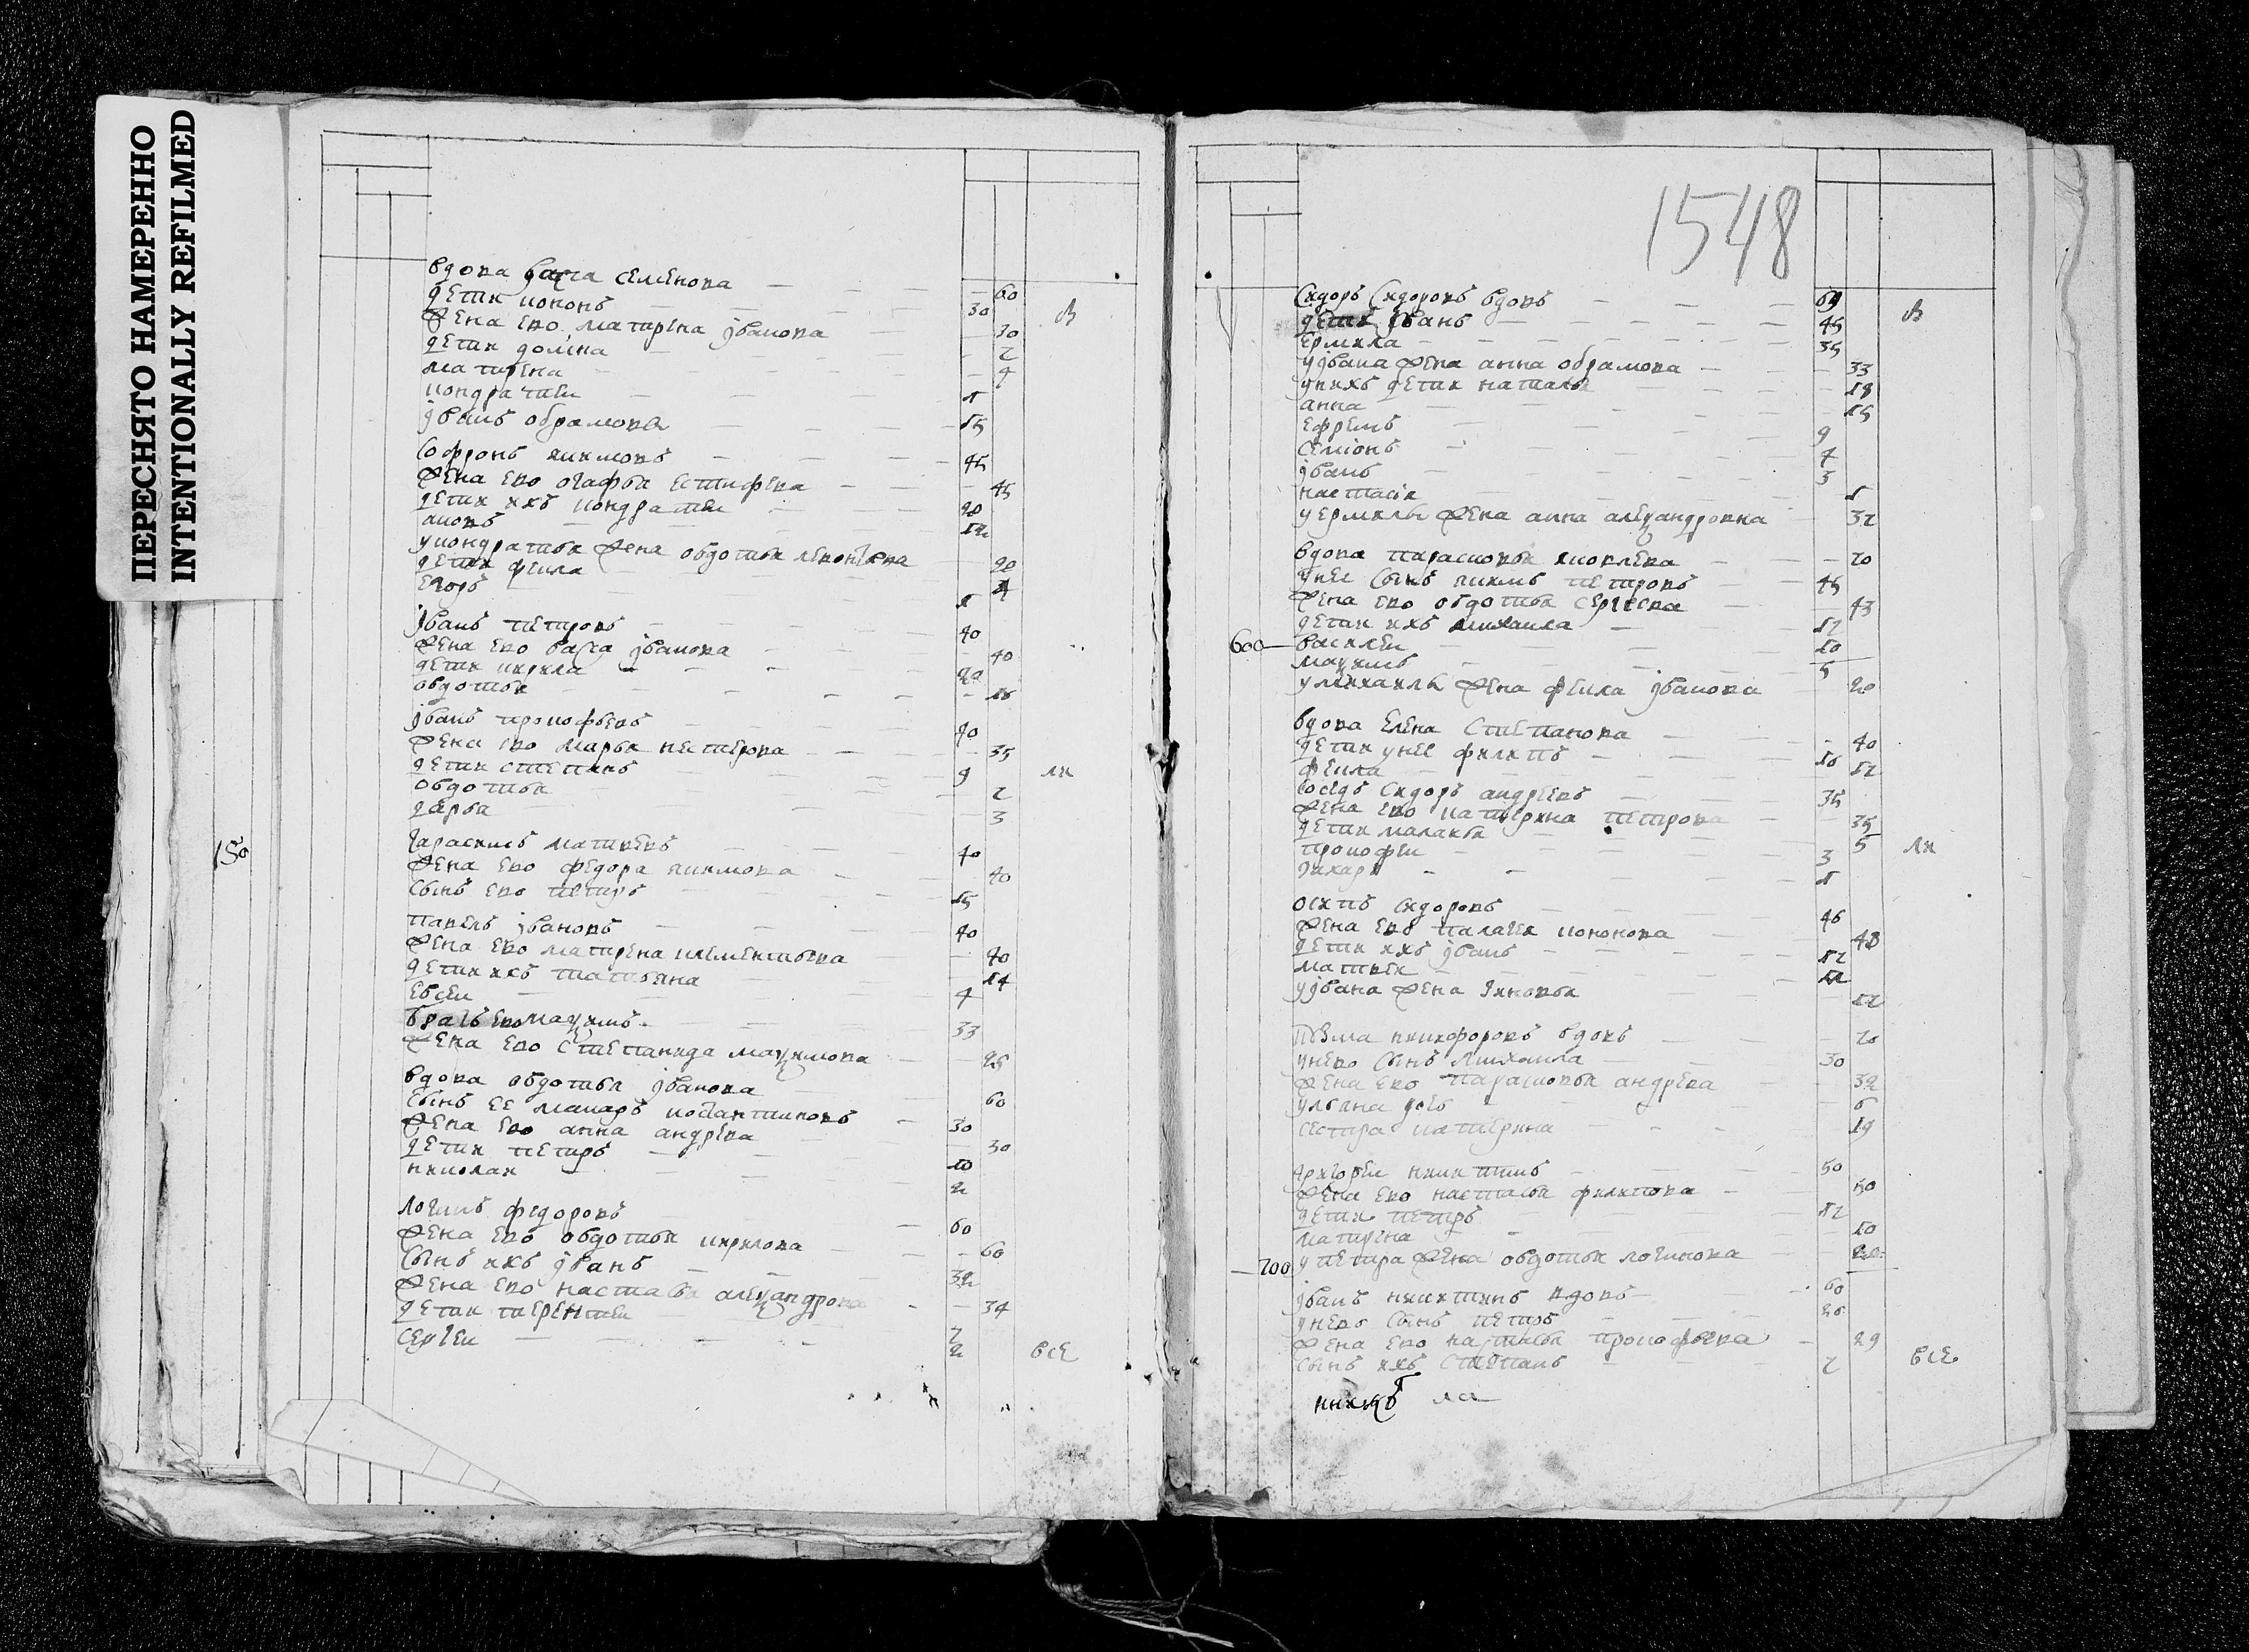 ПЕРЕСНЯТО НАМЕРЕННО
INTENTIONALLY REFILMED
150
вдова васса семенова — 60
дети кононъ 30 в
жена ево матрена јванова — 30
дети домна — 2
матрена — 4
кондратеи 1
јванъ обрамовъ 15
Софронъ акимовъ 45
жена ево огафья естифева — 45
дети ихъ кондратеи 20
яковъ 12
укондратья жена овдотья левонтева 20
дети фекла 4
егоръ 1
јванъ петровъ 40
жена ево васса јванова — 40
дети кирила 20
овдотья — 16
јванъ прокофьевъ 40
жена ево марья нестерова — 35
дети степанъ 9 ли
овдотья — 7
дарья — 3
гарасимъ матвевъ 40
жена ево федора акимова — 40
сынъ ево петръ 15
павелъ јвановъ 40
жена ево матрена клементьева — 40
дети ихъ татьяна — 14
евсеи 4
братъ ево маѯимъ 33
жена ево степанида маѯимова — 25
вдова овдотья јванова — 60
сынъ ее макаръ костантиновъ 30
жена ево анна андрева — 30
дети петръ 10
николаи 2
логинъ федоровъ 60
жена ево овдотья кирилова — 60
сынъ ихъ јванъ 32
жена ево настасья алеѯандрова — 34
дети терентеи 7
сергеи 2 все
1548
Сидоръ Сидоровъ вдовъ 69 в
дети јванъ 45
ермила 35
ујвана жена анна обрамова — 33
унихъ дети наталья — 18
анна — 15
ефремъ 9
семіонъ 4
јванъ 3
настасія — 1
уермилы жена анна алеѯандровна 32
вдова парасковья яковлева — 70
унее сынъ якимъ петровъ 45
жена ево овдотья сергеева — 43
дети ихъ михаила 17
600 василеи 10
маѯимъ 5
умихаилы жена фекла јванова 20
вдова елена степанова — 40
дети унее филипъ 16
фекла 12
соседъ Сидоръ андреевъ 35
жена ево катерина петрова — 35
дети маланья 5 ли
прокофеи 3
захаръ 1
осипъ сидоровъ 46
жена ево палагея кононова — 48
дети ихъ јванъ 17
матвеи 12
ујвана жена зиновья 22
никифоровъ вдовъ 70
унево сынъ михаила 30
жена ево парасковья андрева — 32
ульяна дочь 6
сестра катерина — 19
григореи никитинъ 50
жена ево настасья филипова — 50
дети петръ 17
матрена 10
700 упетра жена овдотья логинова
јванъ никитинъ вдовъ 60
унево сынъ петръ 26
жена ево настасья прокофьева — 29
сынъ ихъ степанъ 7 все